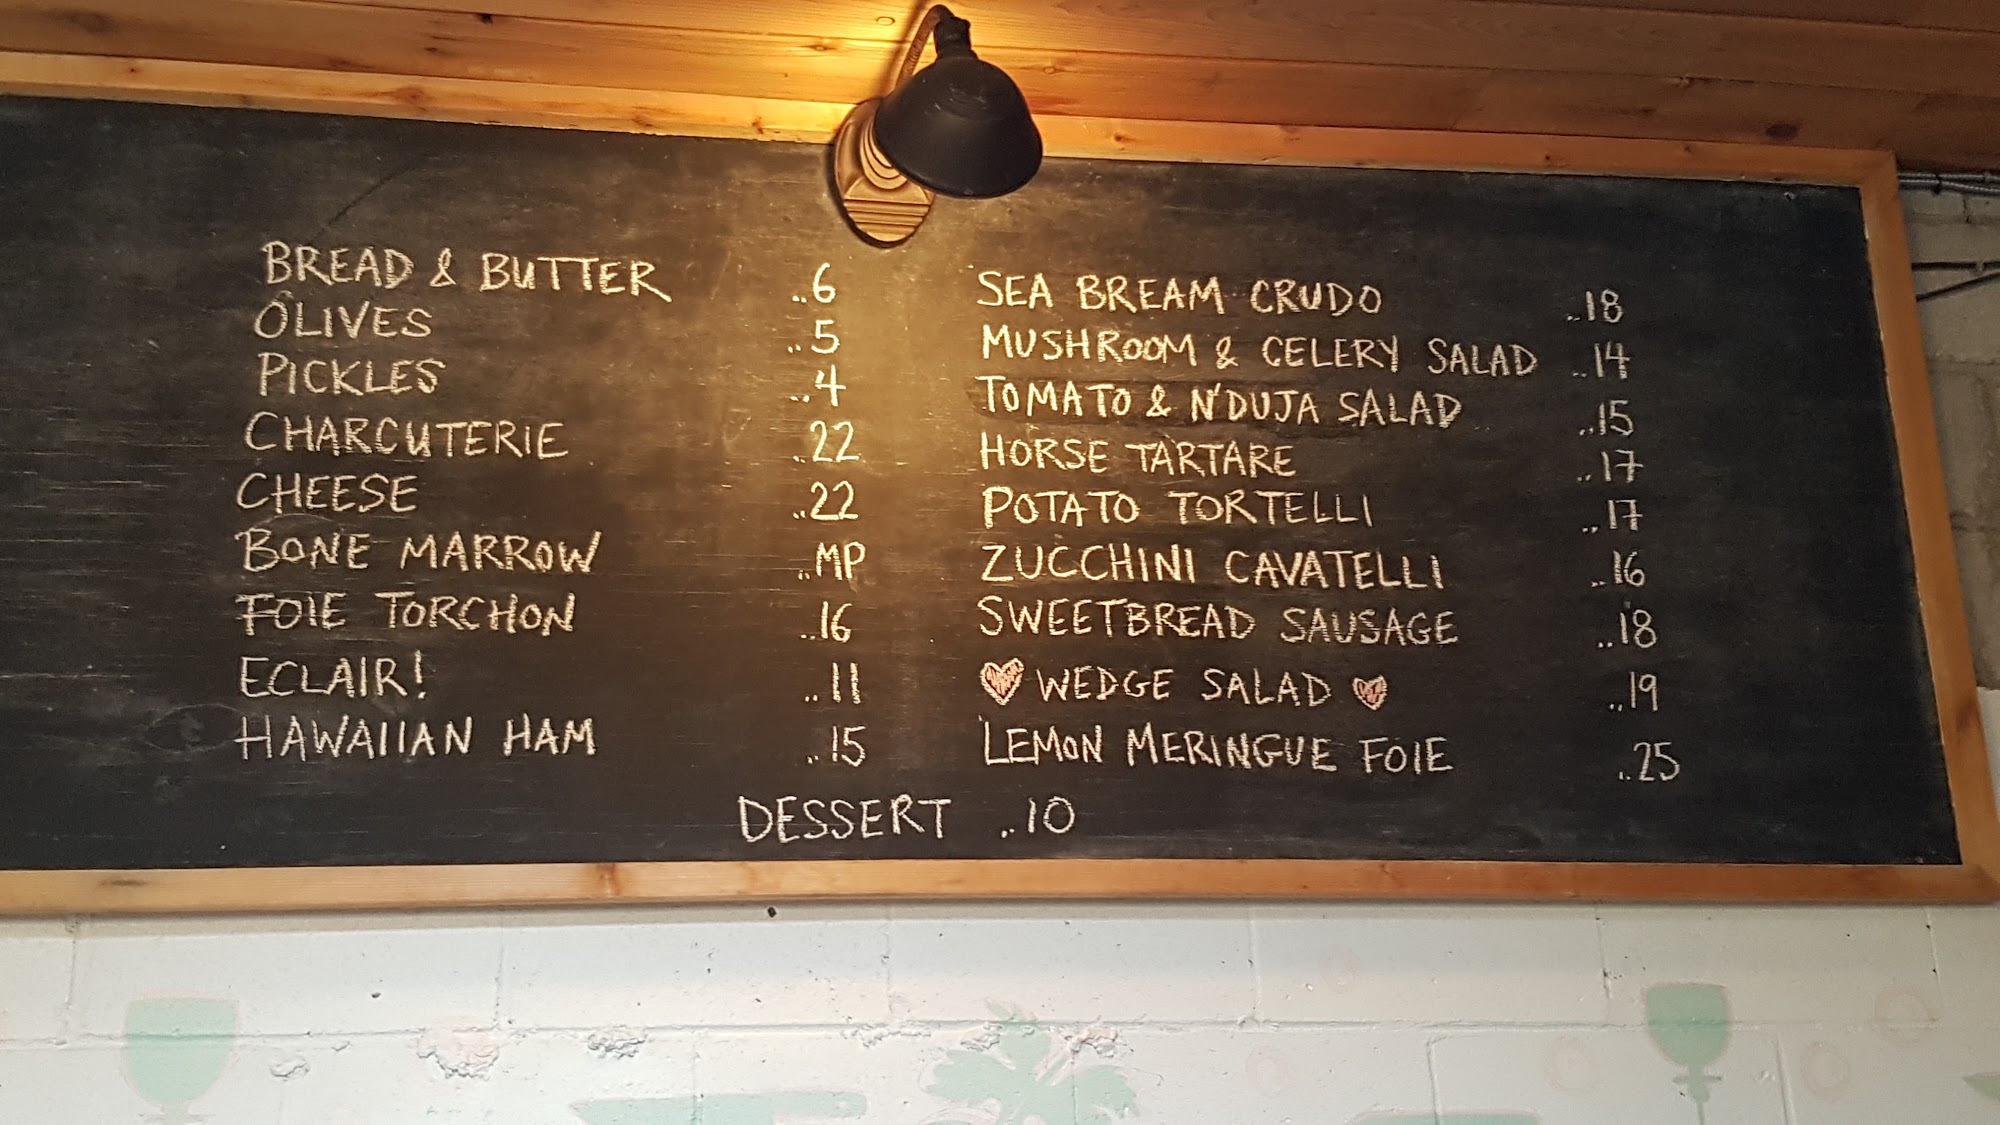 BREAD & BUTTER ..6
OLIVES ..5
PICKLES ..4
CHARCUTERIE ..22
CHEESE ..22
BONE MARROW ..MP
FOIE TORCHON ..16
ECLAIR! ..11
HAWAIIAN HAM ..15
SEA BREAM CRUDO ..18
MUSHROOM & CELERY SALAD ..14
TOMATO & N'DUJA SALAD ..15
HORSE TARTARE ..17
POTATO TORTELLI ..17
ZUCCHINI CAVATELLI ..16
SWEETBREAD SAUSAGE ..18
WEDGE SALAD ..19
LEMON MERINGUE FOIE ..25
DESSERT ..10